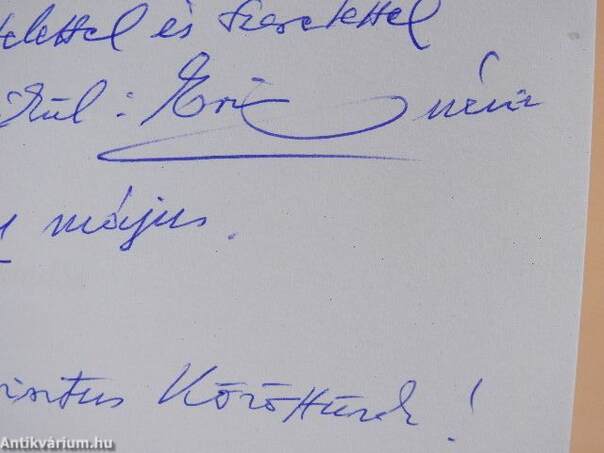 telettel és szeretettel
néni
május.
isztus Közöttünk!
Antikvárium.hu